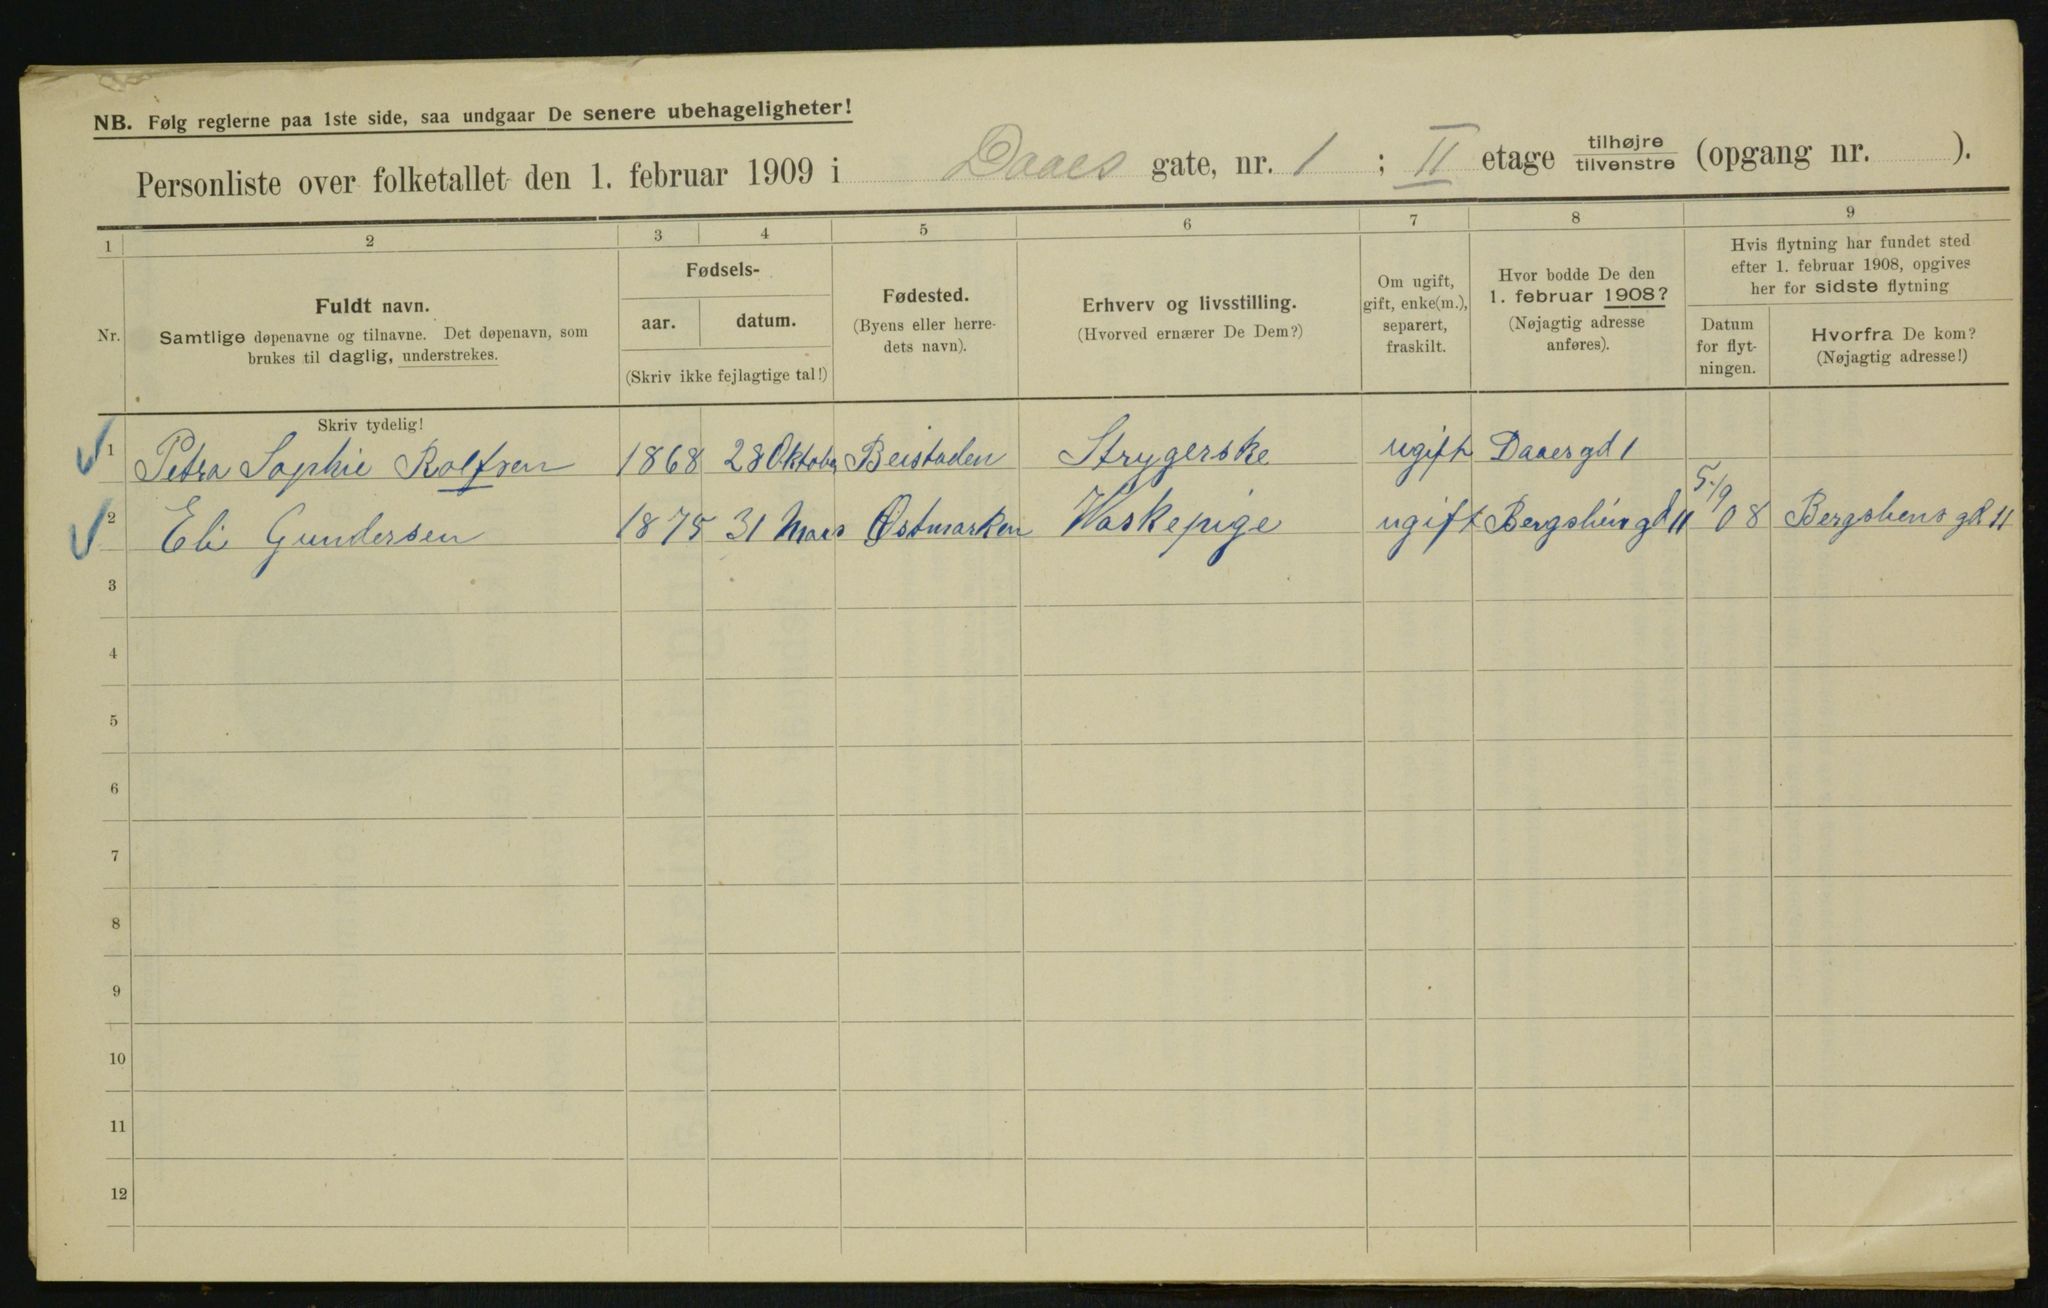 NB. Følg reglerne paa 1ste side, saa undgaar De senere ubehageligheter!
Personliste over folketallet den 1. februar 1909 i Daaes gate, nr. 1 ; II etage tilhøjre tilvenstre (opgang nr. ).
1 2 3 4 5 6 7 8 9
Nr.
Fuldt navn.
Samtlige døpenavne og tilnavne. Det døpenavn, som
brukes til daglig, understrekes.
Fødsels-
aar. datum.
(Skriv ikke fejlagtige tal!)
Fødested.
(Byens eller herre-
dets navn).
Erhverv og livsstilling.
(Hvorved ernærer De Dem?)
Om ugift,
gift, enke(m.),
separert,
fraskilt.
Hvor bodde De den
1. februar 1908?
(Nøjagtig adresse
anføres).
Hvis flytning har fundet sted
efter 1. februar 1908, opgives
her for sidste flytning
Datum
for flyt-
ningen.
Hvorfra De kom?
(Nøjagtig adresse!)
Skriv tydelig!
1 Petra Sophie Rolfsen 1868 28 Oktober Beistaden Strygerske ugift Daaes gd 1
2 Eli Gundersen 1875 31 Mars Østmarken Vaskepige ugift Bergslien gd 11 5/9 08 Bergsliens gd 11
3
4
5
6
7
8
9
10
11
12